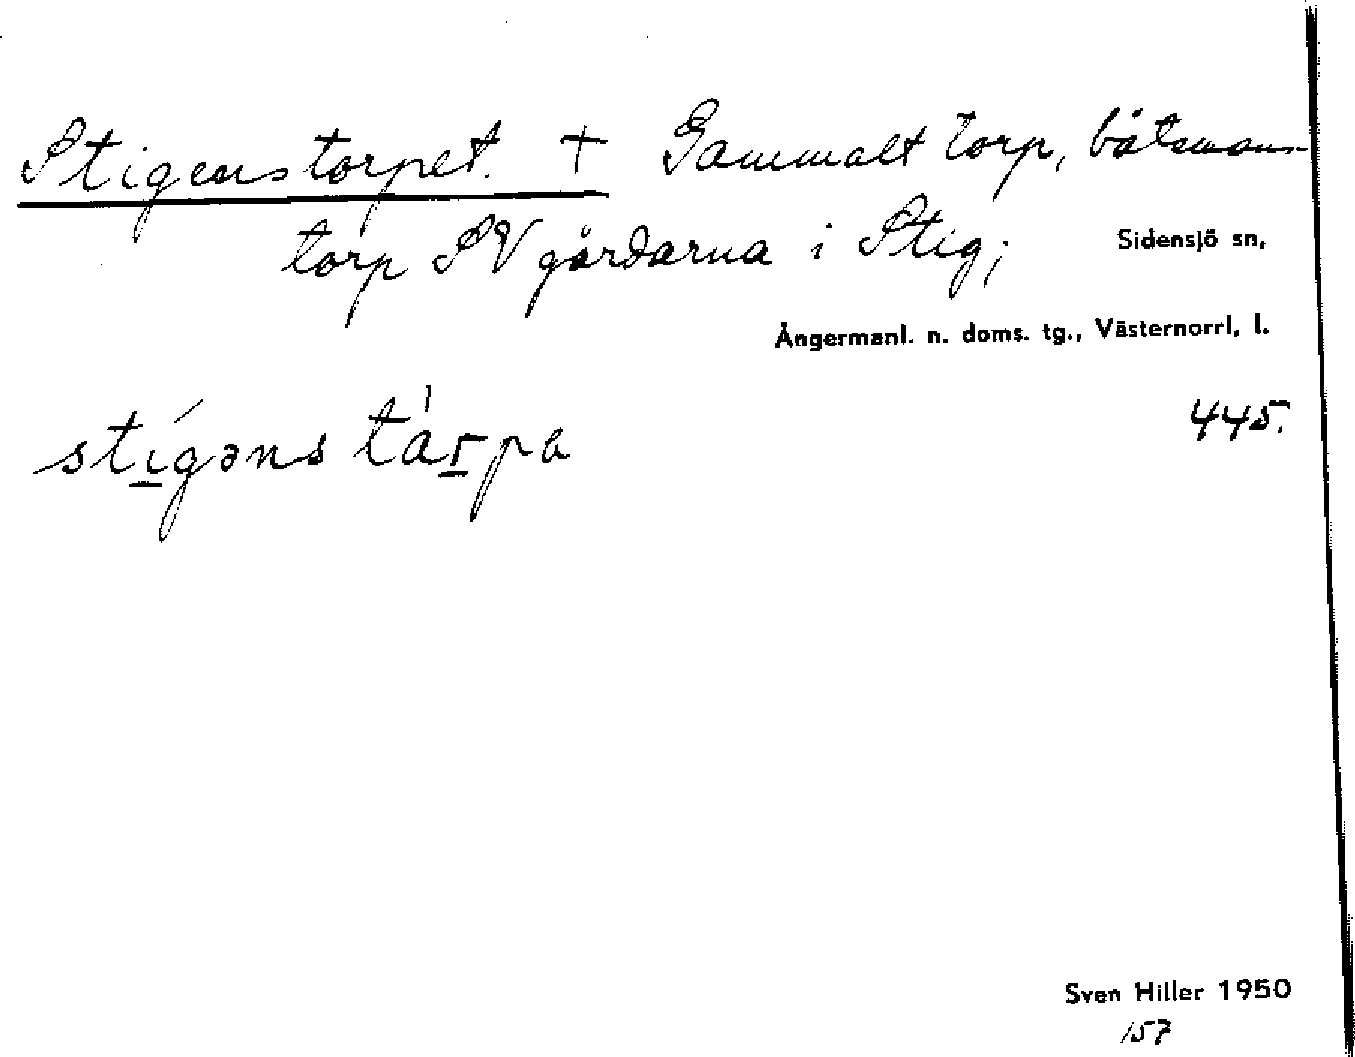 Stigenstorpet. + Gammalt torp, båtsmans-
torp SV gårdarna i Stig;
Sidensjö sn,
Ångermanl. n. doms. tg., Västernorrl. l.
stígəns tàrpa
445.
Sven Hiller 1950
157